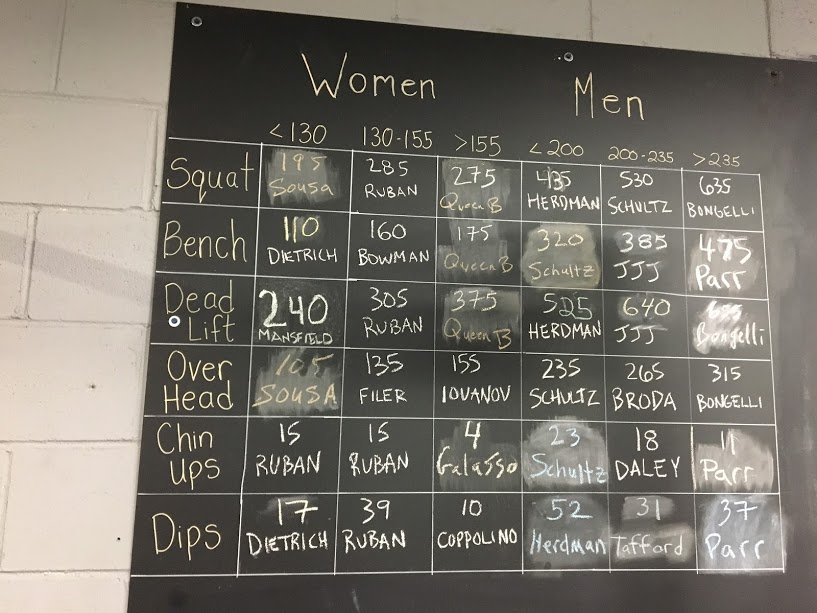 Women Men
<130 130-155 >155 <200 200-235 >235
Squat 195 285 275 435 530 635
Sousa RUBAN Queen B HERDMAN SCHULTZ BONGELLI
Bench 110 160 175 320 385 475
DIETRICH BOWMAN Queen B Schultz JJJ Parr
Dead 240 305 375 525 640
Lift MANSFIELD RUBAN Queen B HERDMAN JJJ Bongelli
Over 105 135 155 235 265 315
Head SOUSA FILER IOVANOV SCHULTZ BRODA BONGELLI
Chin 15 15 4 23 18 11
Ups RUBAN RUBAN Galasso Schultz DALEY Parr
Dips 17 39 10 52 31 37
DIETRICH RUBAN COPPOLINO Herdman Tafford Parr